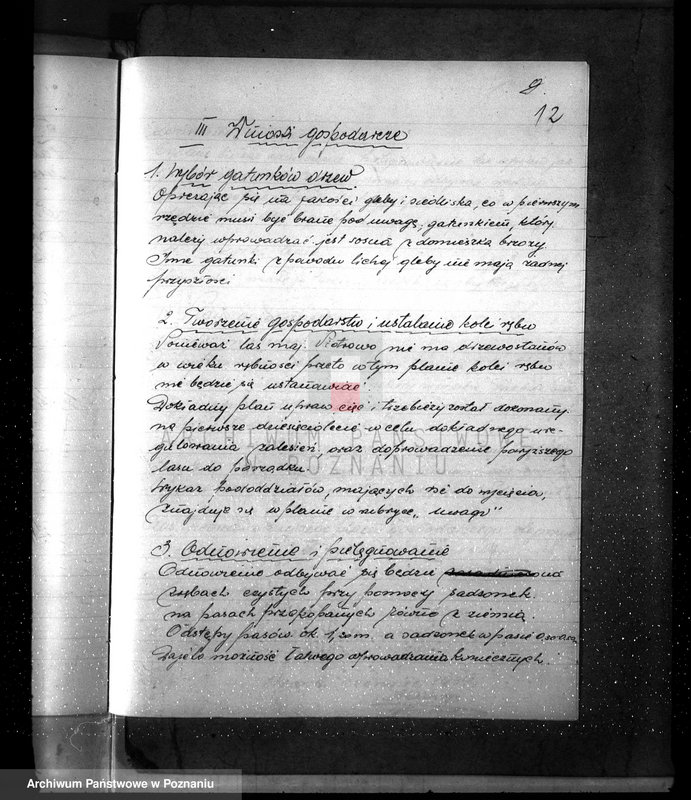 9.
12
III Wnioski gospodarcze
1. Wybór gatunków drzew
Opierając się na jakości gleby i siedliska, co w pierwszym
rzędzie musi być brane pod uwagę, gatunkiem, który
należy wprowadzać jest sosna z domieszką brzozy
Inne gatunki z powodu lichej gleby nie mają żadnej
przyszłości
2. Tworzenie gospodarstw i ustalanie kolei rębu
Ponieważ las maj. Piotrowo nie ma drzewostanów
w wieku rębności przeto w tym planie kolei rębu
nie będzie się ustanawiać.
Dokładny plan upraw cięć i trzebieży został dokonany
na pierwsze dziesięciolecie w celu dokładnego ure-
gulowania zalesień oraz doprowadzenie powyższego
lasu do porządku.
Wykaz pododdziałów, mających iść do wycięcia,
znajduje się w planie w rubryce „uwagi"
3. Odnowienie i pielęgnowanie
Odnowienie odbywać się będzie na
zrębach czystych przy pomocy sadzonek
na pasach przekopanych równo z ziemią.
Odstępy pasów ok. 1,30 m. a sadzonek w pasie
Daje to możność łatwego wprowadzania koniecznych
ARCHIWUM PAŃSTWOWE
W POZNANIU
Archiwum Państwowe w Poznaniu